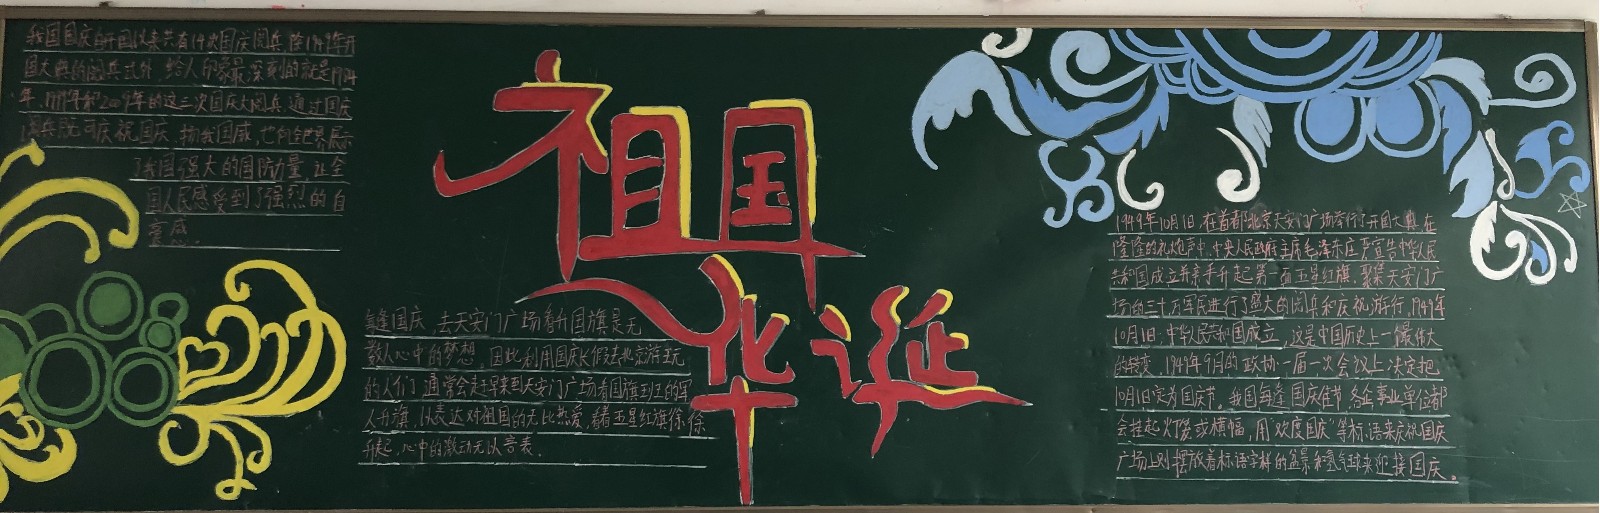 我国国庆自开国以来共有14次国庆阅兵,除1949年开
国大典的阅兵式外,给人印象最深刻的就是1984
年、1999年和2009年的这三次国庆大阅兵,通过国庆
阅兵既可庆祝国庆,扬我国威,也向全世界展示
了我国强大的国防力量,让全
国人民感受到了强烈的自
豪感.
祖国
华诞
每逢国庆,去天安门广场看升国旗是无
数人心中的梦想,因此利用国庆长假去北京游玩
的人们通常会赶早来到天安门广场看国旗
人升旗,以表达对祖国的无比热爱,看着五星红旗徐徐
升起,心中的激动无以言表.
1949年10月1日,在首都北京天安门广场举行了开国大典,在
隆隆的礼炮声中,中央人民政府主席毛泽东庄严宣告中华人民
共和国成立并亲手升起第一面五星红旗,聚集天安门广
场的三十万军民进行了盛大的阅兵和庆祝游行,1949年
10月1日,中华人民共和国成立,这是中国历史上一个最伟大
的转变,1949年9月的政协一届一次会议上决定把
10月1日定为国庆节,我国每逢国庆佳节,各企事业单位都
会挂起灯笼或横幅,用"欢度国庆"等标语来庆祝国庆
广场上则摆放着标语字样的盆景和氢气球来迎接国庆。